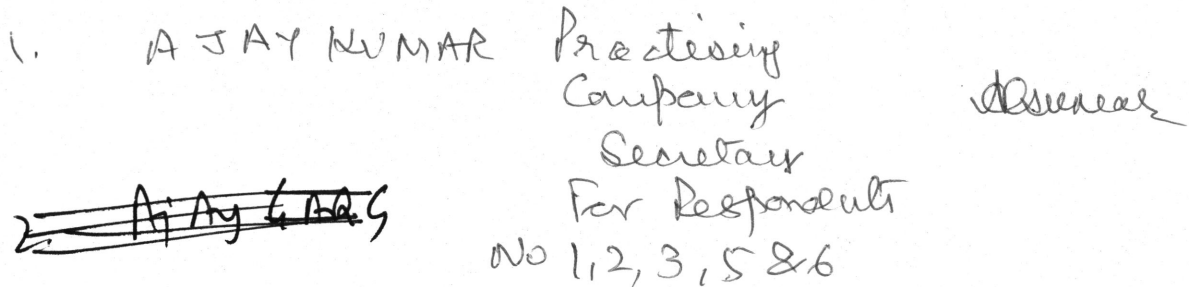 1. AJAY KUMAR Practising
Company
Secretary
For Respondents
No 1, 2, 3, 5 & 6
2 Ajay GARG